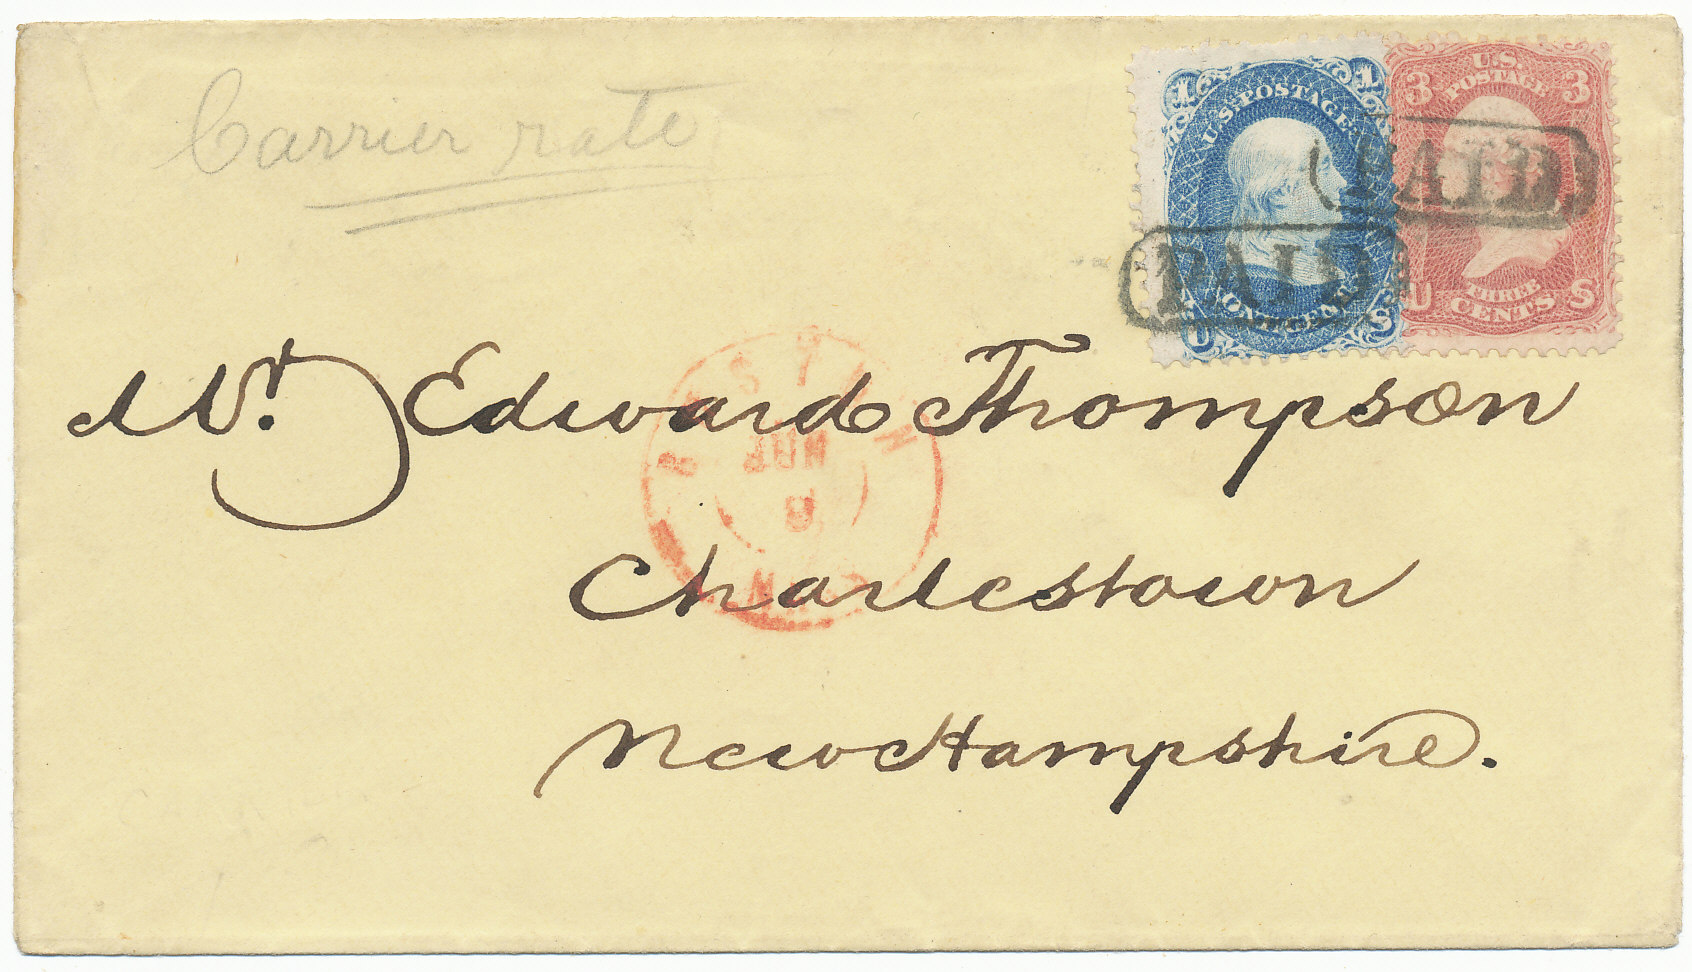 Carrier rate
1 1
U.S. POSTAGE
ONE CENT
U S
3 3
U.S. POSTAGE
THREE CENTS
U S
PAID
PAID
BOSTON
JUN
MASS
Mr. Edward Thompson
Charlestown
New Hampshire.